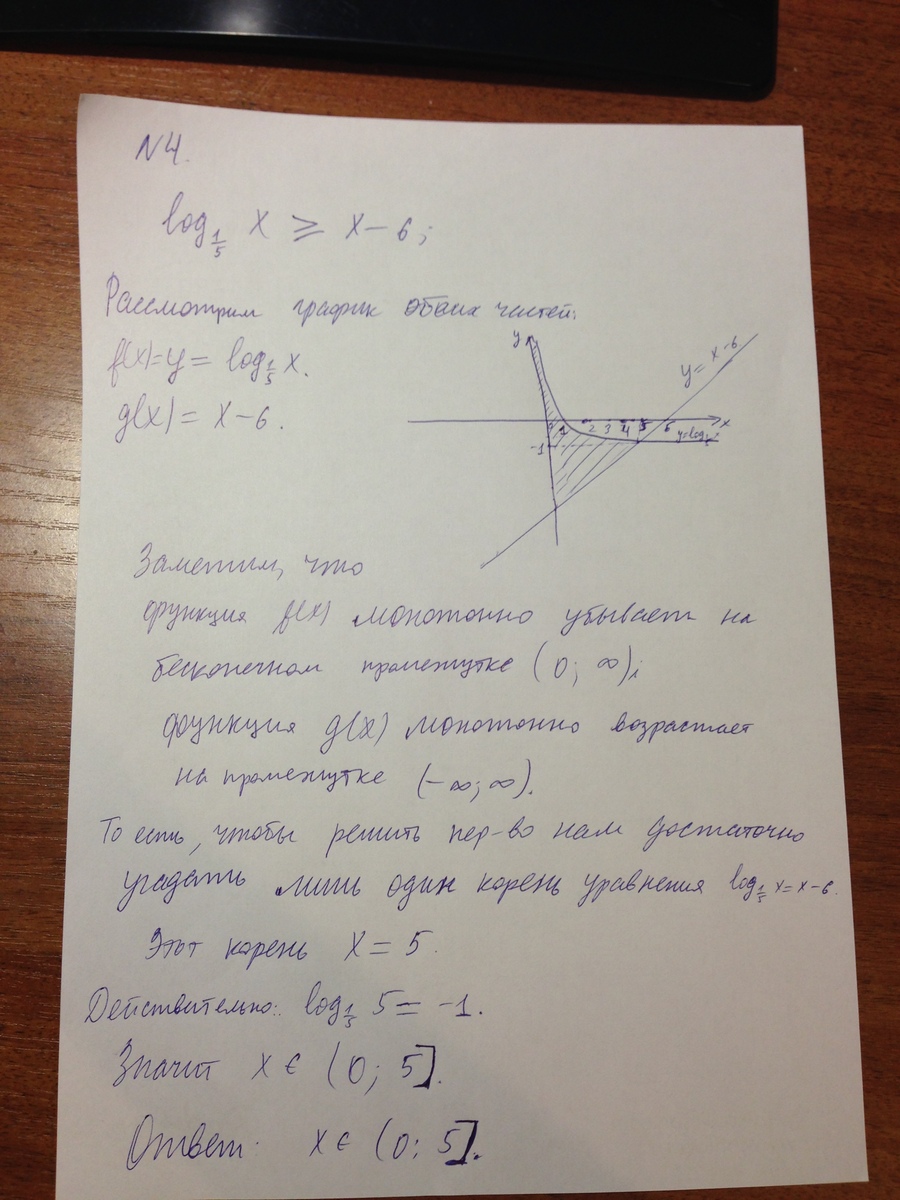 N4.
log_{1/5} x ≥ x - 6;
Рассмотрим график обоих частей:
f(x)=y = log_{1/5} x.
g(x) = x - 6.
y
y = x - 6
1 2 3 4 5 6 x
y=log_{1/5} x
-1
Заметим, что
функция f(x) монотонно убывает на
бесконечном промежутке (0; ∞);
функция g(x) монотонно возрастает
на промежутке (-∞; ∞).
То есть, чтобы решить нер-во нам достаточно
угадать лишь один корень уравнения log_{1/5} x = x - 6.
Этот корень x = 5.
Действительно: log_{1/5} 5 = -1.
Значит x ∈ (0; 5].
Ответ: x ∈ (0; 5].